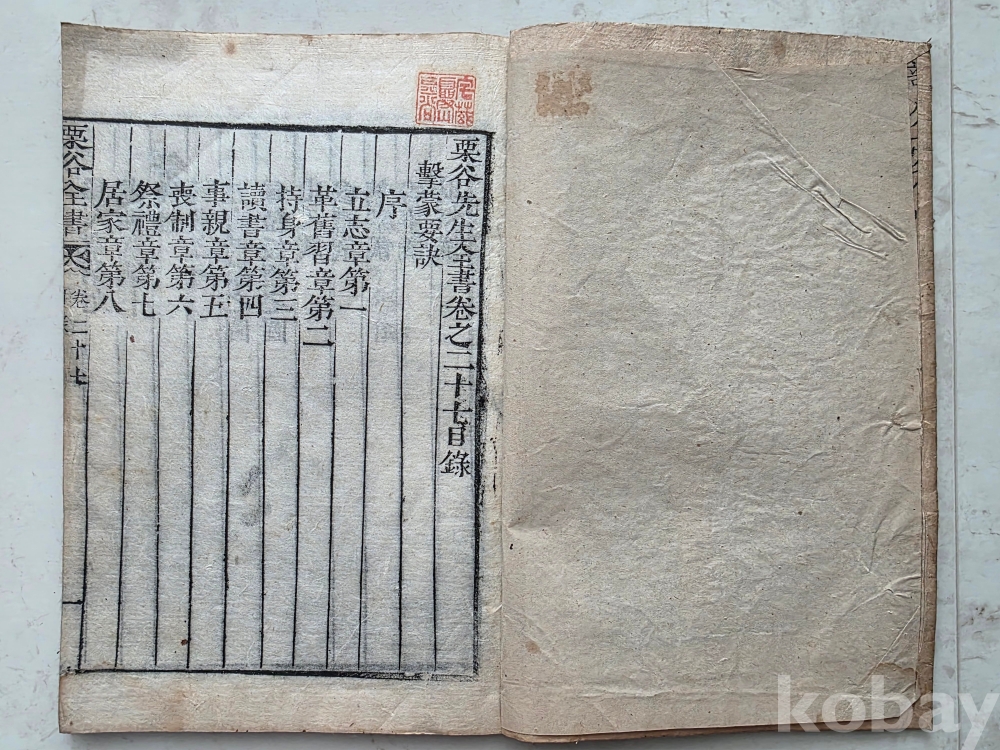 栗谷先生全書卷之二十七目錄
擊蒙要訣
序
立志章第一
革舊習章第二
持身章第三
讀書章第四
事親章第五
喪制章第六
祭禮章第七
居家章第八
栗谷全書
卷二十七
一
kobay